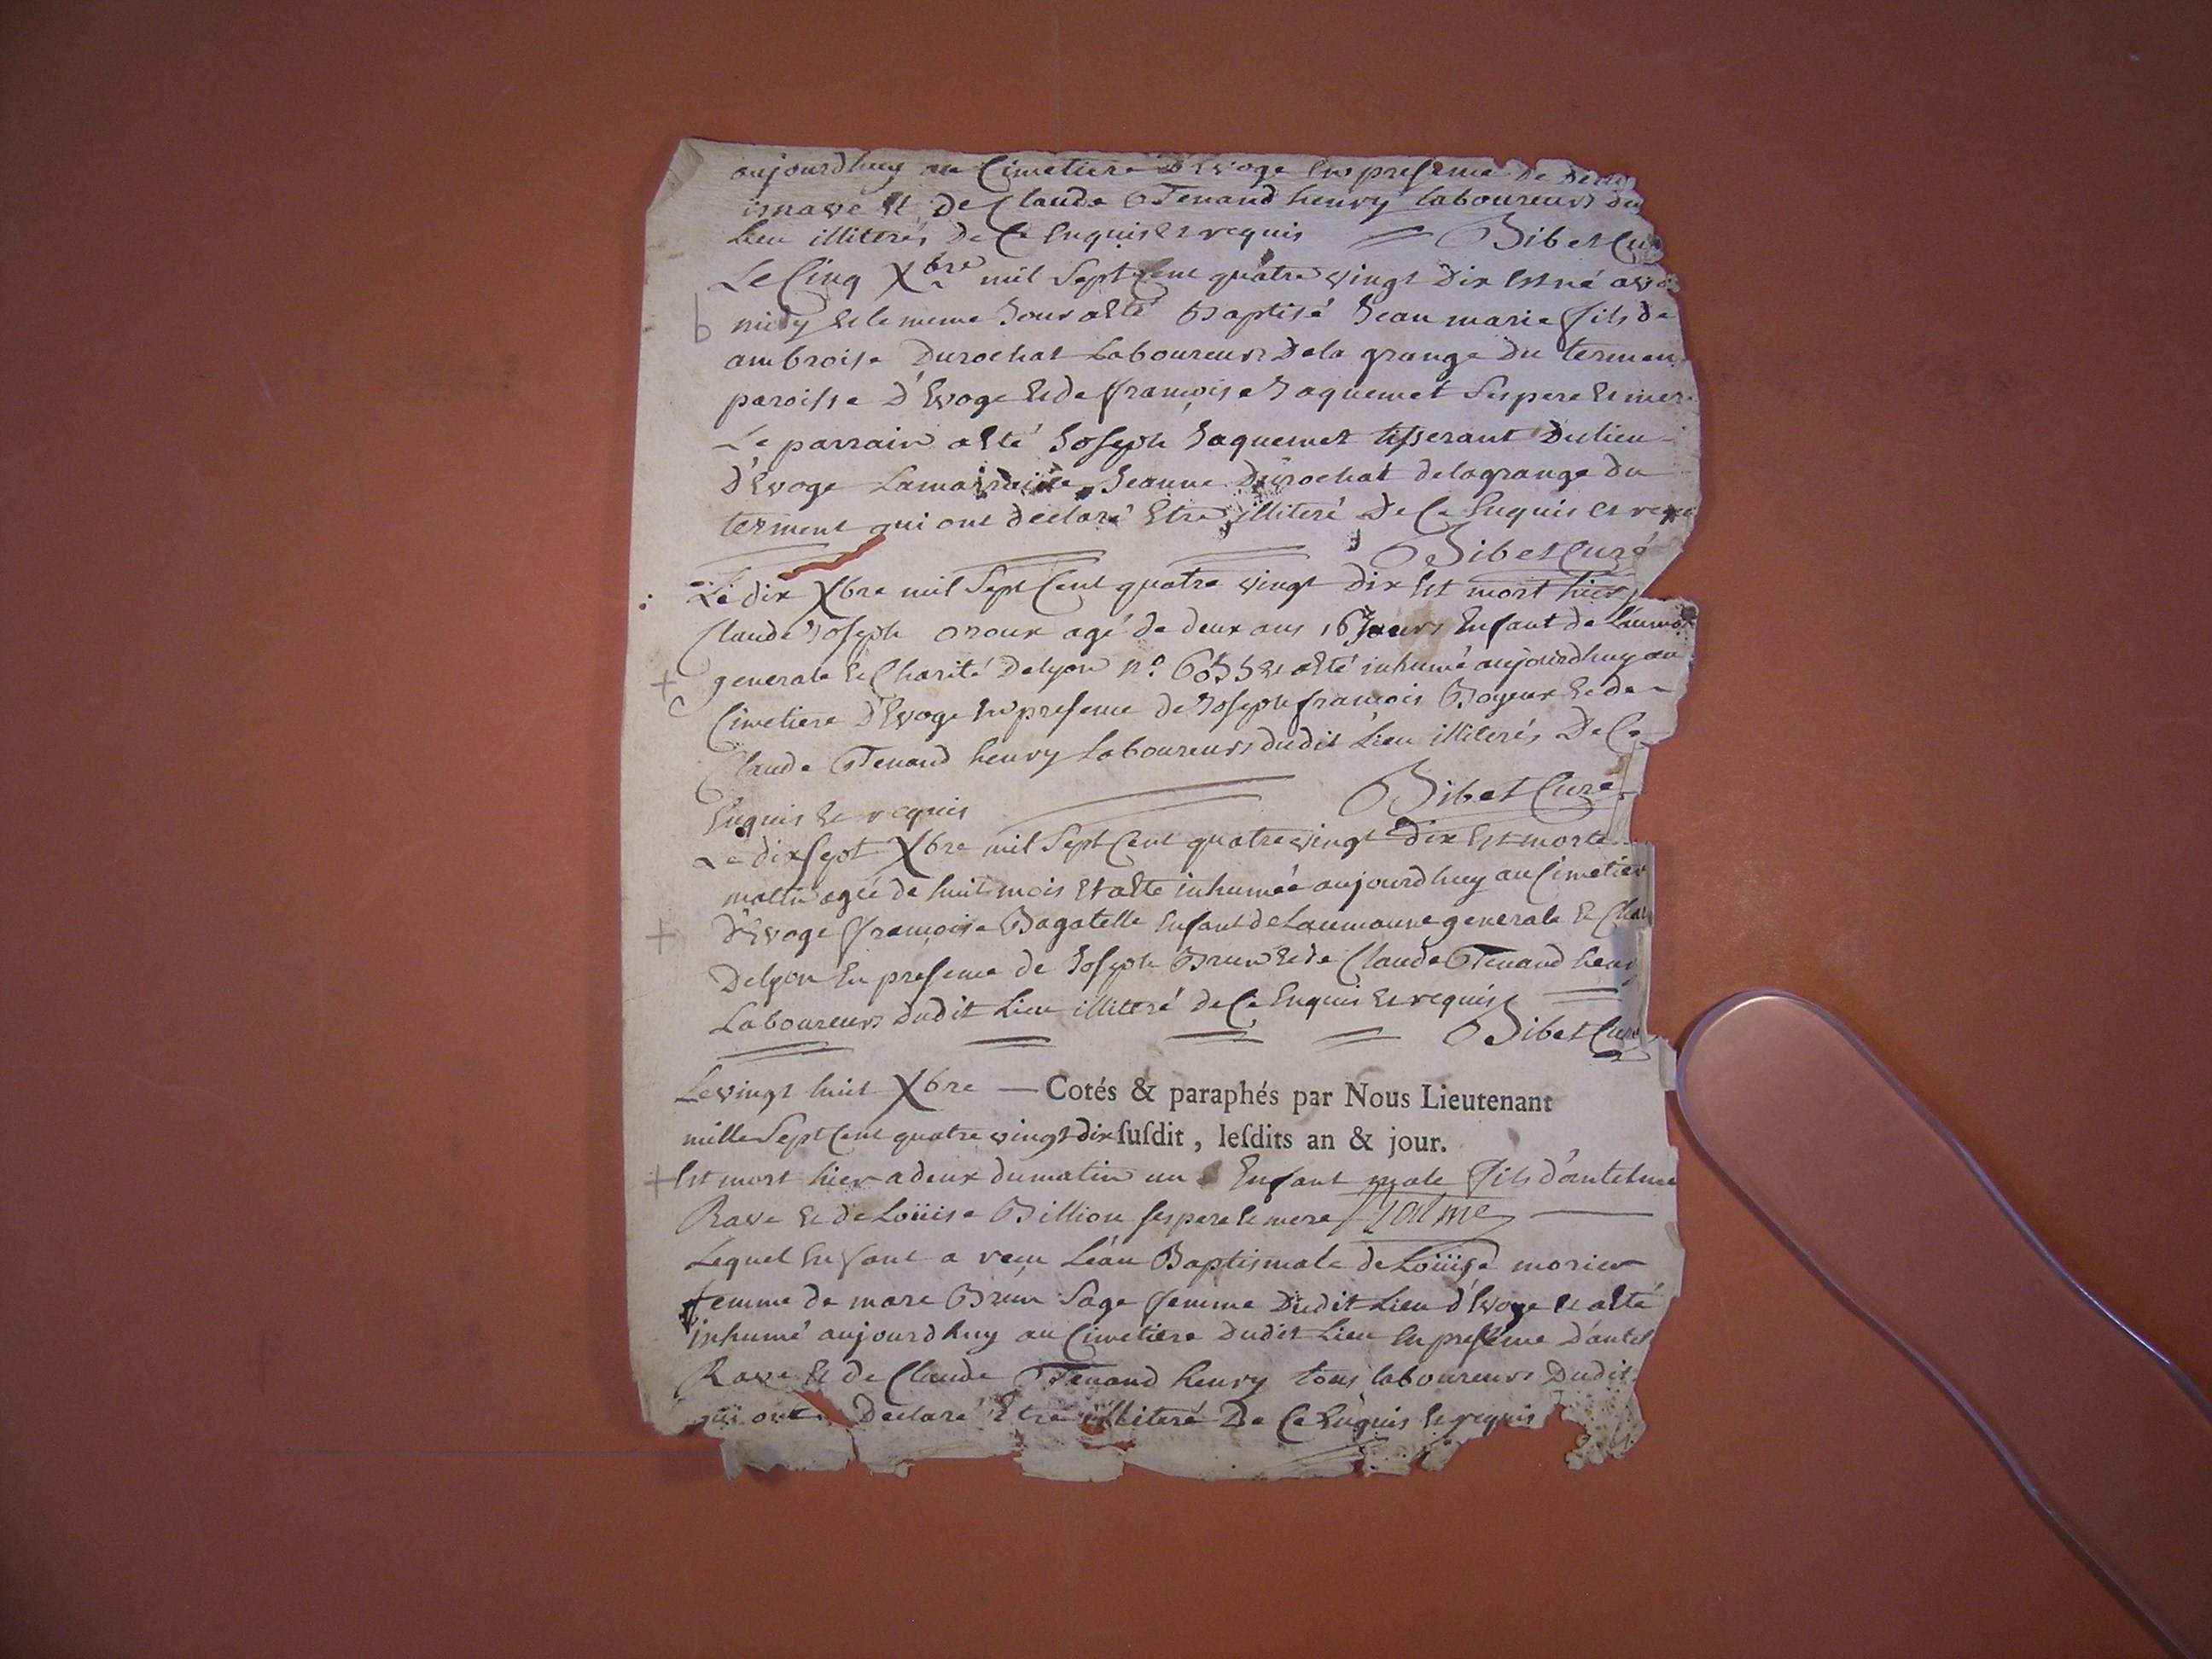 aujourdhuy au Cimetiere D'Evoge En presence De
et De Claude Tenand henry laboureurs du
Lieu illiterés De Ce Enquis et requis Bibet Cu
Le Cinq Xbre mil Sept Cent quatre vingt Dix Est né
b midy et le meme Jour a Eté Baptisé Jean marie fils de
ambroise Durochat Laboureurs De la grange du termen
paroisse D'Evoge et de francoise Jaquemet Ses pere et mer
Le parrain a Eté Joseph Jaquemet tisserant Du lieu
D'Evoge La marraine Jeanne Durochat de la grange du
terment qui ont declaré Etre illiteré De Ce Enquis et requ
Bibet Curé
Le dix Xbre mil Sept Cent quatre vingt dix Est mort hier
Claude Joseph oroux agé de deux ans 16 Jours Enfant de L'aumo
+ generale et Charité De lyon n.o et a Eté inhumé aujourdhuy au
Cimetiere D'Evoge En presence de Joseph francois Boyeux et de
Claude Tenand henry Laboureurs dudit Lieu illiterés De Ce
Enquis et requis Bibet Curé
Le dix Sept Xbre mil Sept Cent quatre vingt dix Est morte
matin agée de huit mois Et a Eté inhumée aujourdhuy au Cimetier
+ D'Evoge francoise Bagatelle Enfant de Laumaune generale et Cha
De lyon En presence de Joseph Brun et de Claude Tenand henry
Laboureurs dudit Lieu illiteré de Ce Enquis et requis
Bibet Curé
Le vingt huit Xbre — Cotés & paraphés par Nous Lieutenant
mille Sept Cent quatre vingt dix suſdit , leſdits an & jour.
+ Est mort hier a deux du matin un Enfant male fils d'antelme
Rave et de Loüise Billion ses pere et mere
Lequel Enfant a recu L'eau Baptismale de Loüise morier
femme de marc Brun Sage femme Dudit Lieu d'Evoge et a Eté
inhumé aujourdhuy au Cimetiere Dudit Lieu En presence D'antel
Rave et de Claude Tenand henry tous laboureurs Dudit
qui ont Declaré Etre illiteré De Ce Enquis et requis